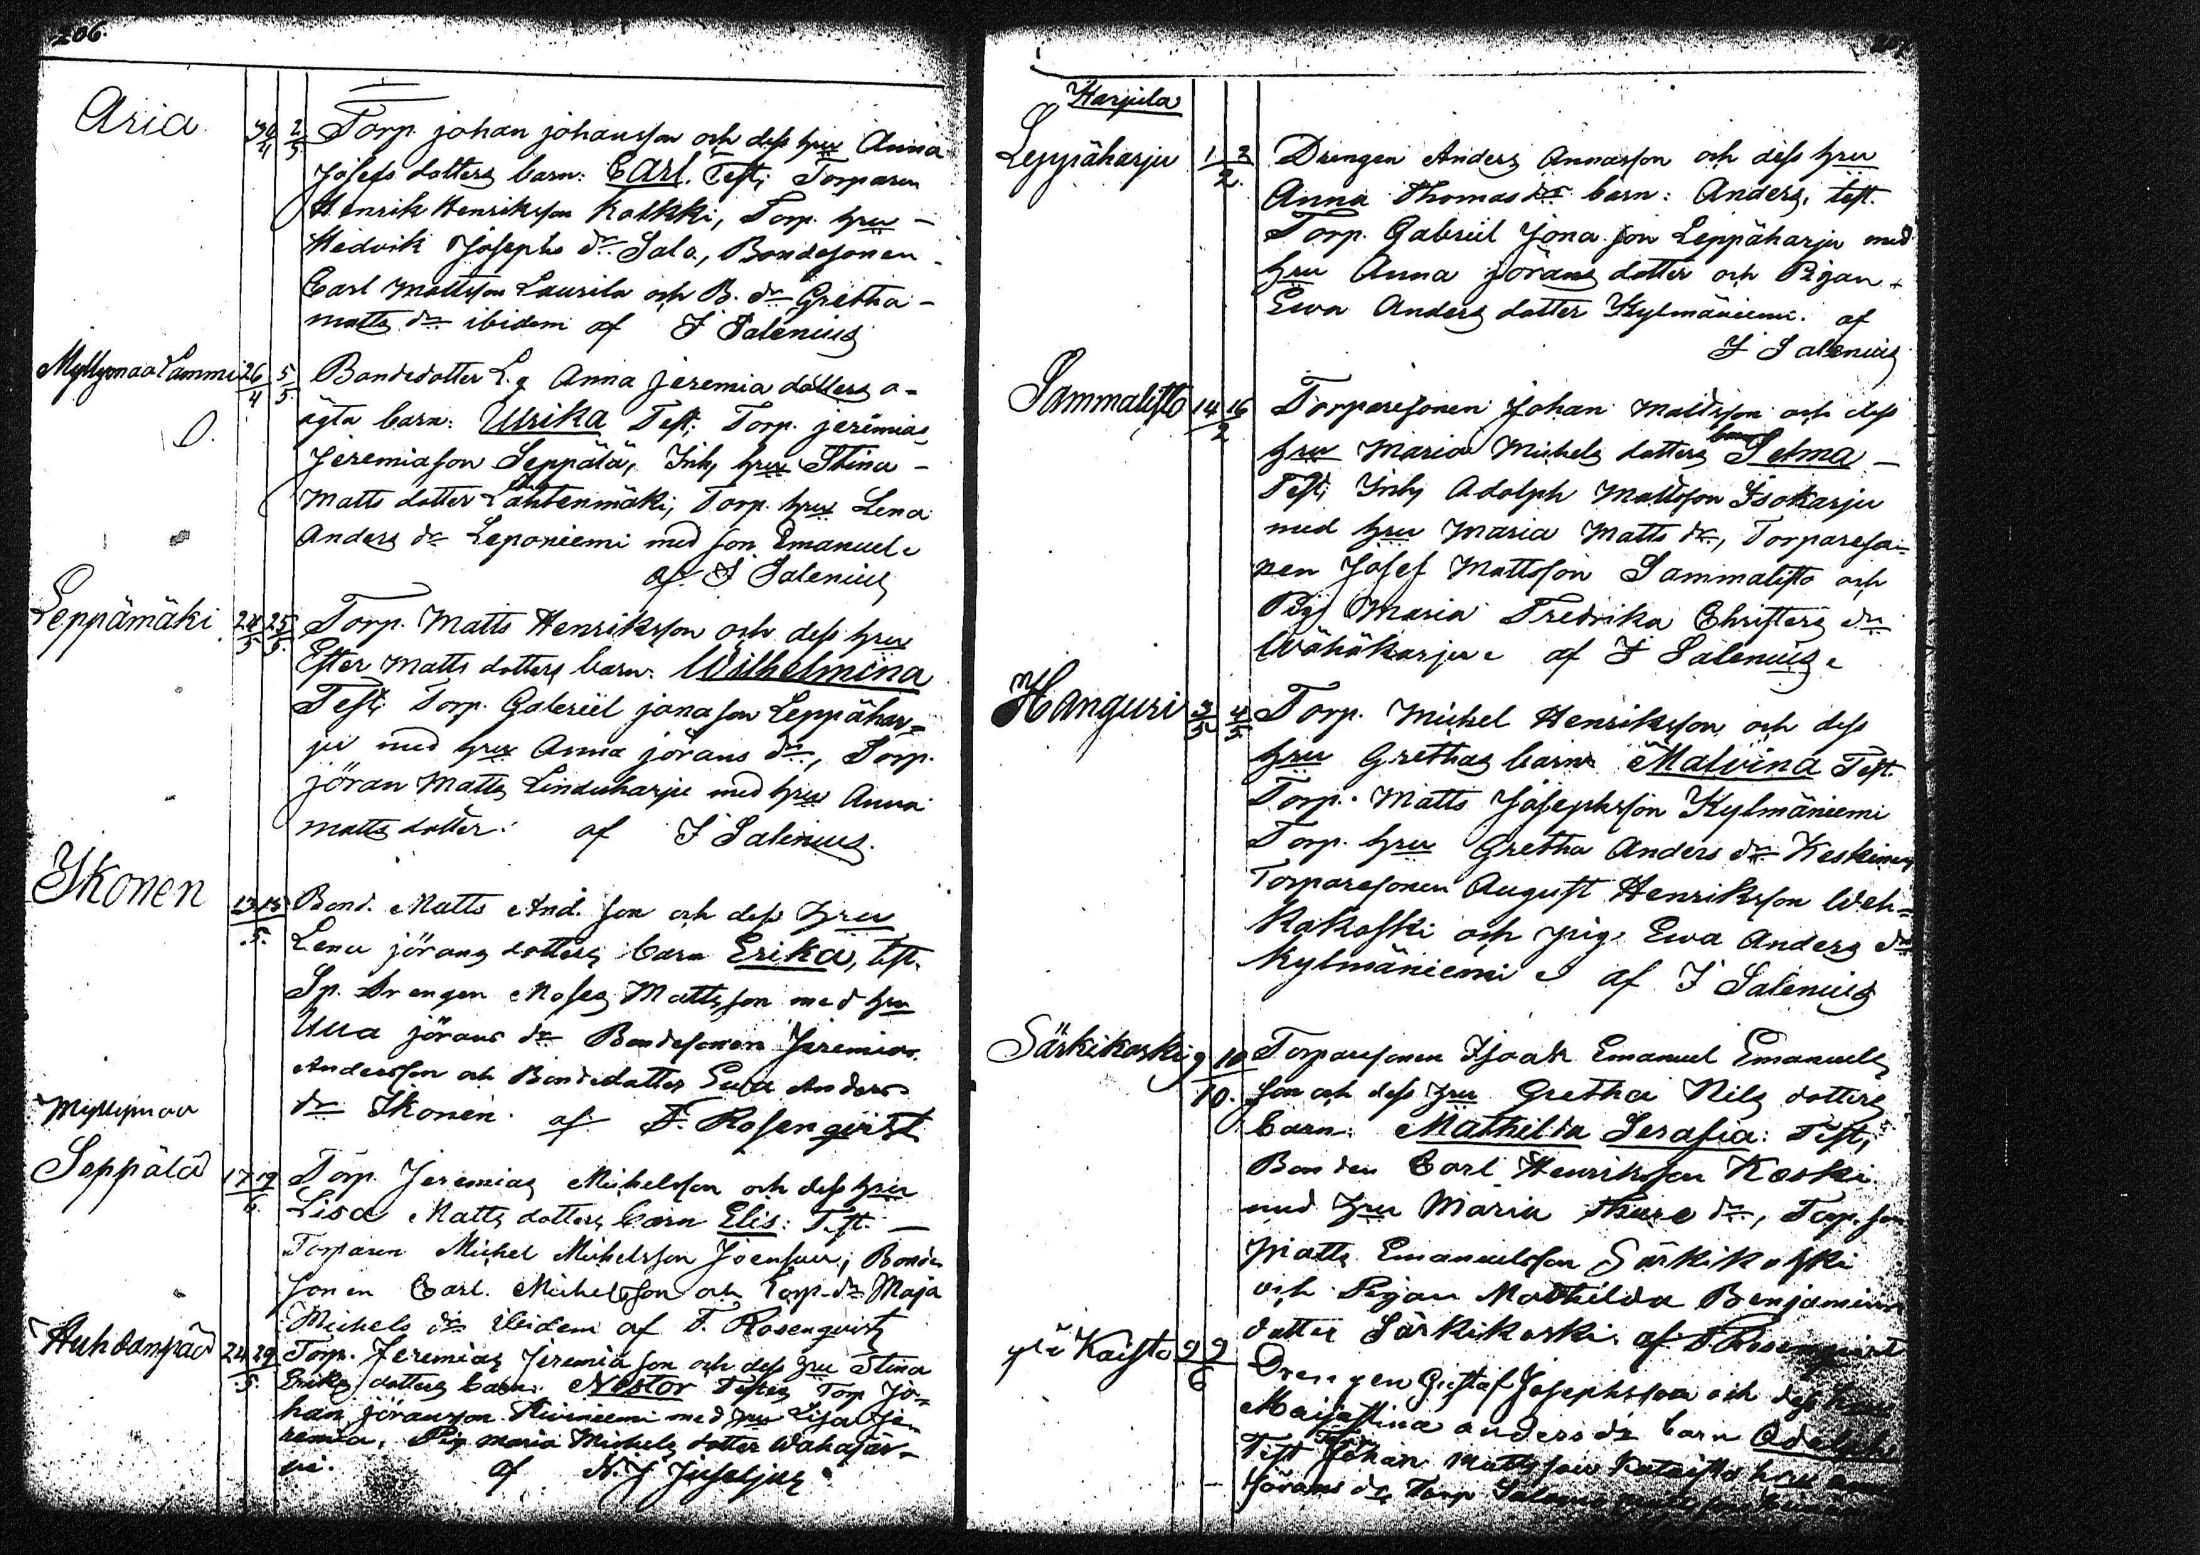 206.
Aria 30/4 2/5 Torp. Johan Johansson och dess hru Anna
Josefs dotters barn: Carl. Test; Torparen
Henrik Henriksson Kalkki, Torp. hru –
Hedvik Josephs dr Salo, Bondesonen
Carl Mattsson Laurila och B. dr Gretha –
matts dr ibidem af F Salenius
Myllymaa Lammi 26/4 5/5 Bondedotter L.g Anna Jeremia dotters o-
ägta barn: Ulrika Test; Torp. Jeremias
Jeremiason Seppälä, Inh. hru Stina –
Matts dotter Lähtenmäki, Torp. hru Lena
Anders dr Leponiemi med son Emanuel
af F Salenius
Leppämäki 24/5 25/5 Torp. Matts Henriksson och dess hru
Ester Matts dotters barn: Wilhelmina
Test; Torp. Gabriel Jonason Leppähar=
ju med hru Anna Jörans dr, Torp.
Jöran Matts Linduharju med hru Anna
matts dotter. af F Salenius.
Ikonen 13 15/5. Bond. Matts And. son och dess hru
Lena Jörans dotters barn Erika, test.
Sp. Drengen Moses Mattsson med hru
Ulla Jörans dr Bondesonen Jeremias
Andersson och Bondedotter Ewa Anders
dr Ikonen. af F. Rosenqvist
Myllymaa
Seppälä 17 19/6 Torp. Jeremias Michelsson och dess hru
Lisa Matts dotters barn Elis: Test. –
Torparen Michel Michelsson Joensuu, Bonde
sonen Carl Michelsson och Torp. dr Maja
Michels dr ibidem af F. Rosenqvist
Huhdanpää 24 29/5. Torp. Jeremias Jeremia son och dess hru Stina
Eriks dotters barn: Nestor Testes Torp Jo-
han Jöransson Kiviniemi med hru Lisa Je-
remia, Pig. Maria Michels dotter Wahajär-
vi. af N. J Juseljus
Harjula
Leppäharju 1 2/2. Drengen Anders Annasson och dess hru
Anna Thomas dr barn: Anders, test.
Torp. Gabriel Jona son Leppäharju med
hru Anna Jörans dotter och Pigan
Ewa Anders dotter Kylmäniemi. af
F Salenius
Sammalisto 14 16/2 Torparesonen Johan Mattsson och dess
hru Maria Michels dotters barn Selma –
Test; Inh. Adolph Mattsson Isoharju
med hru Maria Matts dr, Torpareso=
nen Josef Mattsson Sammalisto och
Pig. Maria Fredrika Christers dr
Wähäharju af F Salenius
Hanguri 3/5 4/5 Torp. Michel Henriksson och dess
hru Grethas barn Malvina Test.
Torp. Matts Josephsson Kylmäniemi
Torp. hru Gretha Anders dr
Torparesonen August Henriksson Weh=
kakoski och pig. Ewa Anders dr
Kylmäniemi af F Salenius
Särkikoski 9 10/10. Torparesonen Isaak Emanuel Emanuels
son och dess hru Gretha Nils dotters
barn: Mathilda Serafia: Test;
Bonden Carl Henriksson Koski
med hru Maria Thure dr, Torp. son
Matts Emanuelsson Särkikoski
och Pigan Mathilda Benjamins
dotter Särkikoski. af F. Rosenqvist
Kaisto 9 9/6 Drengen Gustaf Josephsson och dess hru
Maija Stina anders dr barn Adolph
Test Torp. Johan Mattsson Kataisto hru
Jörans dr Torp